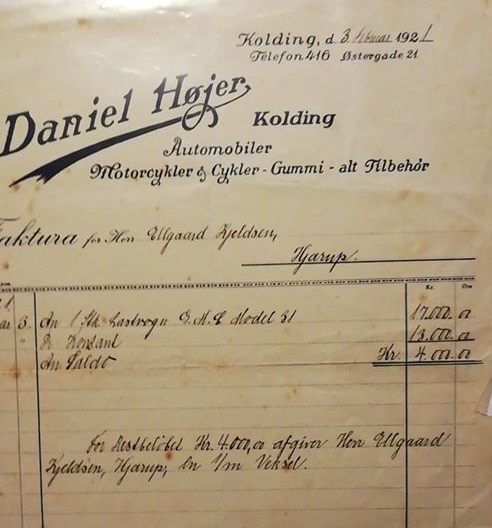 Kolding, d. 3 Februar 1921
Telefon 416 Østergade 21
Daniel Højer, Kolding
Automobiler
Motorcykler & Cykler - Gummi - alt Tilbehör
Faktura for Herr Ellgaard Kjeldsen,
Hjarup.
Kr. Øre
3. An 1 Stk Lastvogn G.M.C. Model 31 17.000.00
" Pr Kontant 13.000.00
An Saldo Kr. 4.000.00
For Restbeløbet Kr. 4.000,00 afgiver Herr Ellgaard
Kjeldsen, Hjarup, en 1/m Veksel.